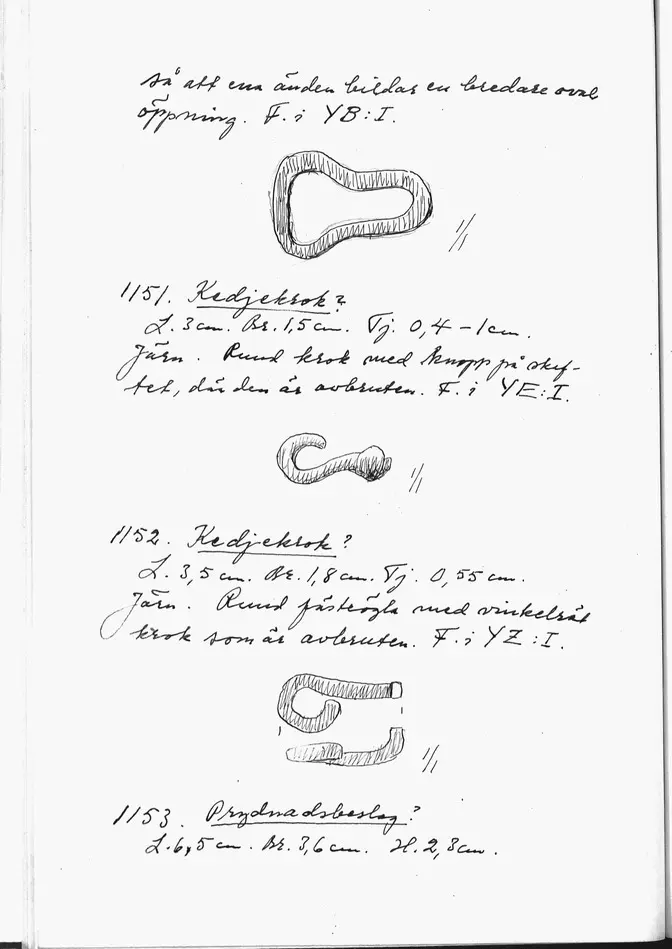 så att ena änden bildar en bredare oval
öppning. F. i YB:I.
1/1
1151. Kedjekrok?
L. 3 cm. Br. 1,5 cm. Tj. 0,4 - 1 cm.
Järn. Rund krok med knopp på skaf-
tet, där den är avbruten. F. i YE:I.
1/1
1152. Kedjekrok?
L. 3,5 cm. Br. 1,8 cm. Tj. 0,55 cm.
Järn. Rund fästeögla med vinkelrät
krok som är avbruten. F. i YZ:I.
1/1
1153. Prydnadsbeslag?
L. 6,5 cm. Br. 3,6 cm. H. 2,3 cm.